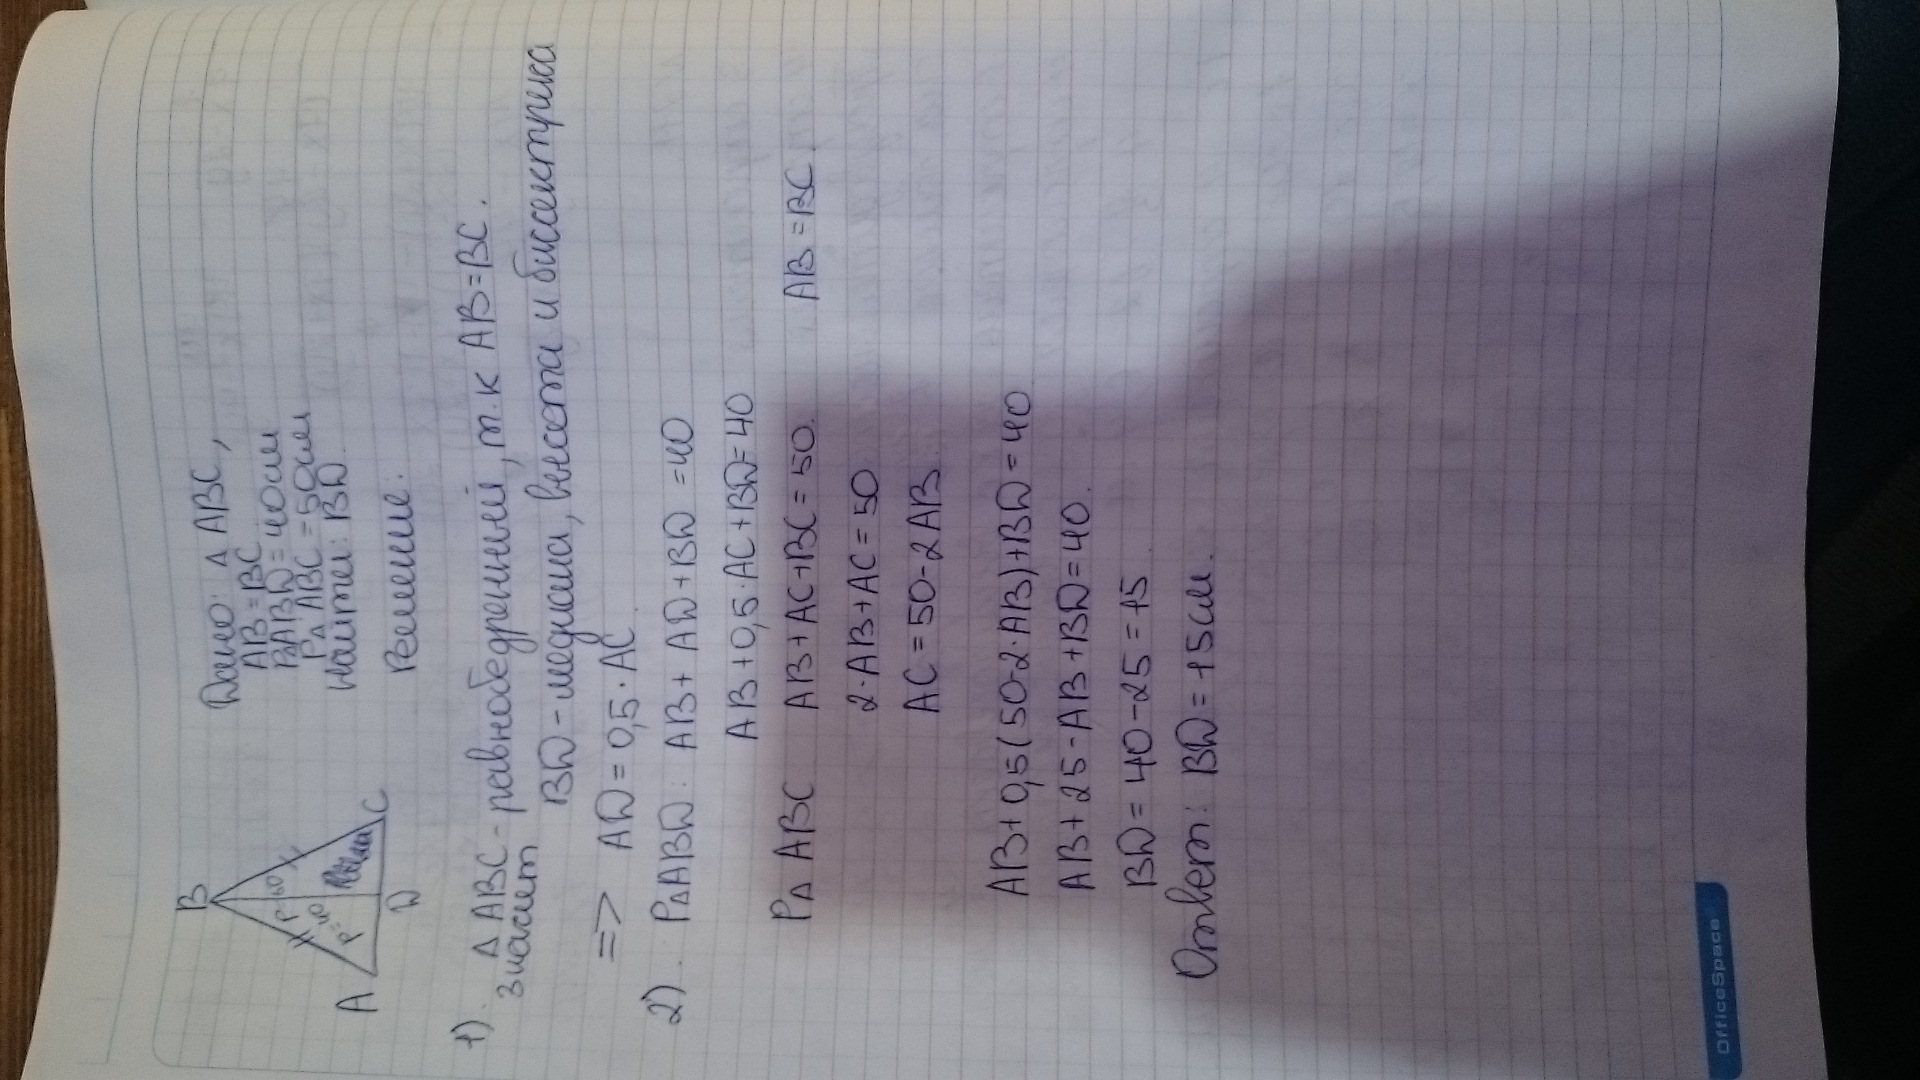 B
P=50
P=40
A
D
C
Дано: Δ ABC,
AB=BC
PΔABD=40см
PΔ ABC=50см
Найти: BD.
Решение:
1). Δ ABC - равнобедренный, т.к AB=BC.
значит BD - медиана, высота и биссектриса
=> AD = 0,5 · AC.
2). PΔABD: AB + AD + BD = 40
AB + 0,5 · AC + BD = 40
PΔ ABC AB + AC + BC = 50. AB = BC.
2·AB + AC = 50
AC = 50 - 2 AB.
AB + 0,5(50-2·AB)+BD = 40
AB + 25 - AB + BD = 40.
BD = 40 - 25 = 15.
Ответ: BD = 15см.
OfficeSpace